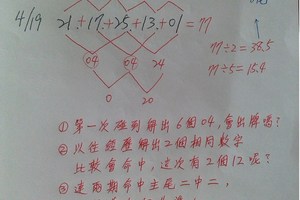 4/19 21.+17.+25.+13.+01=77
77÷2=38.5
77÷5=15.4
04 04 24
0 20
①第一次碰到解出6個04,會出牌嗎?
②以往經歷解出2個相同數字
比較會命中,這次有2個12呢?
③連兩期命中主尾二中二,